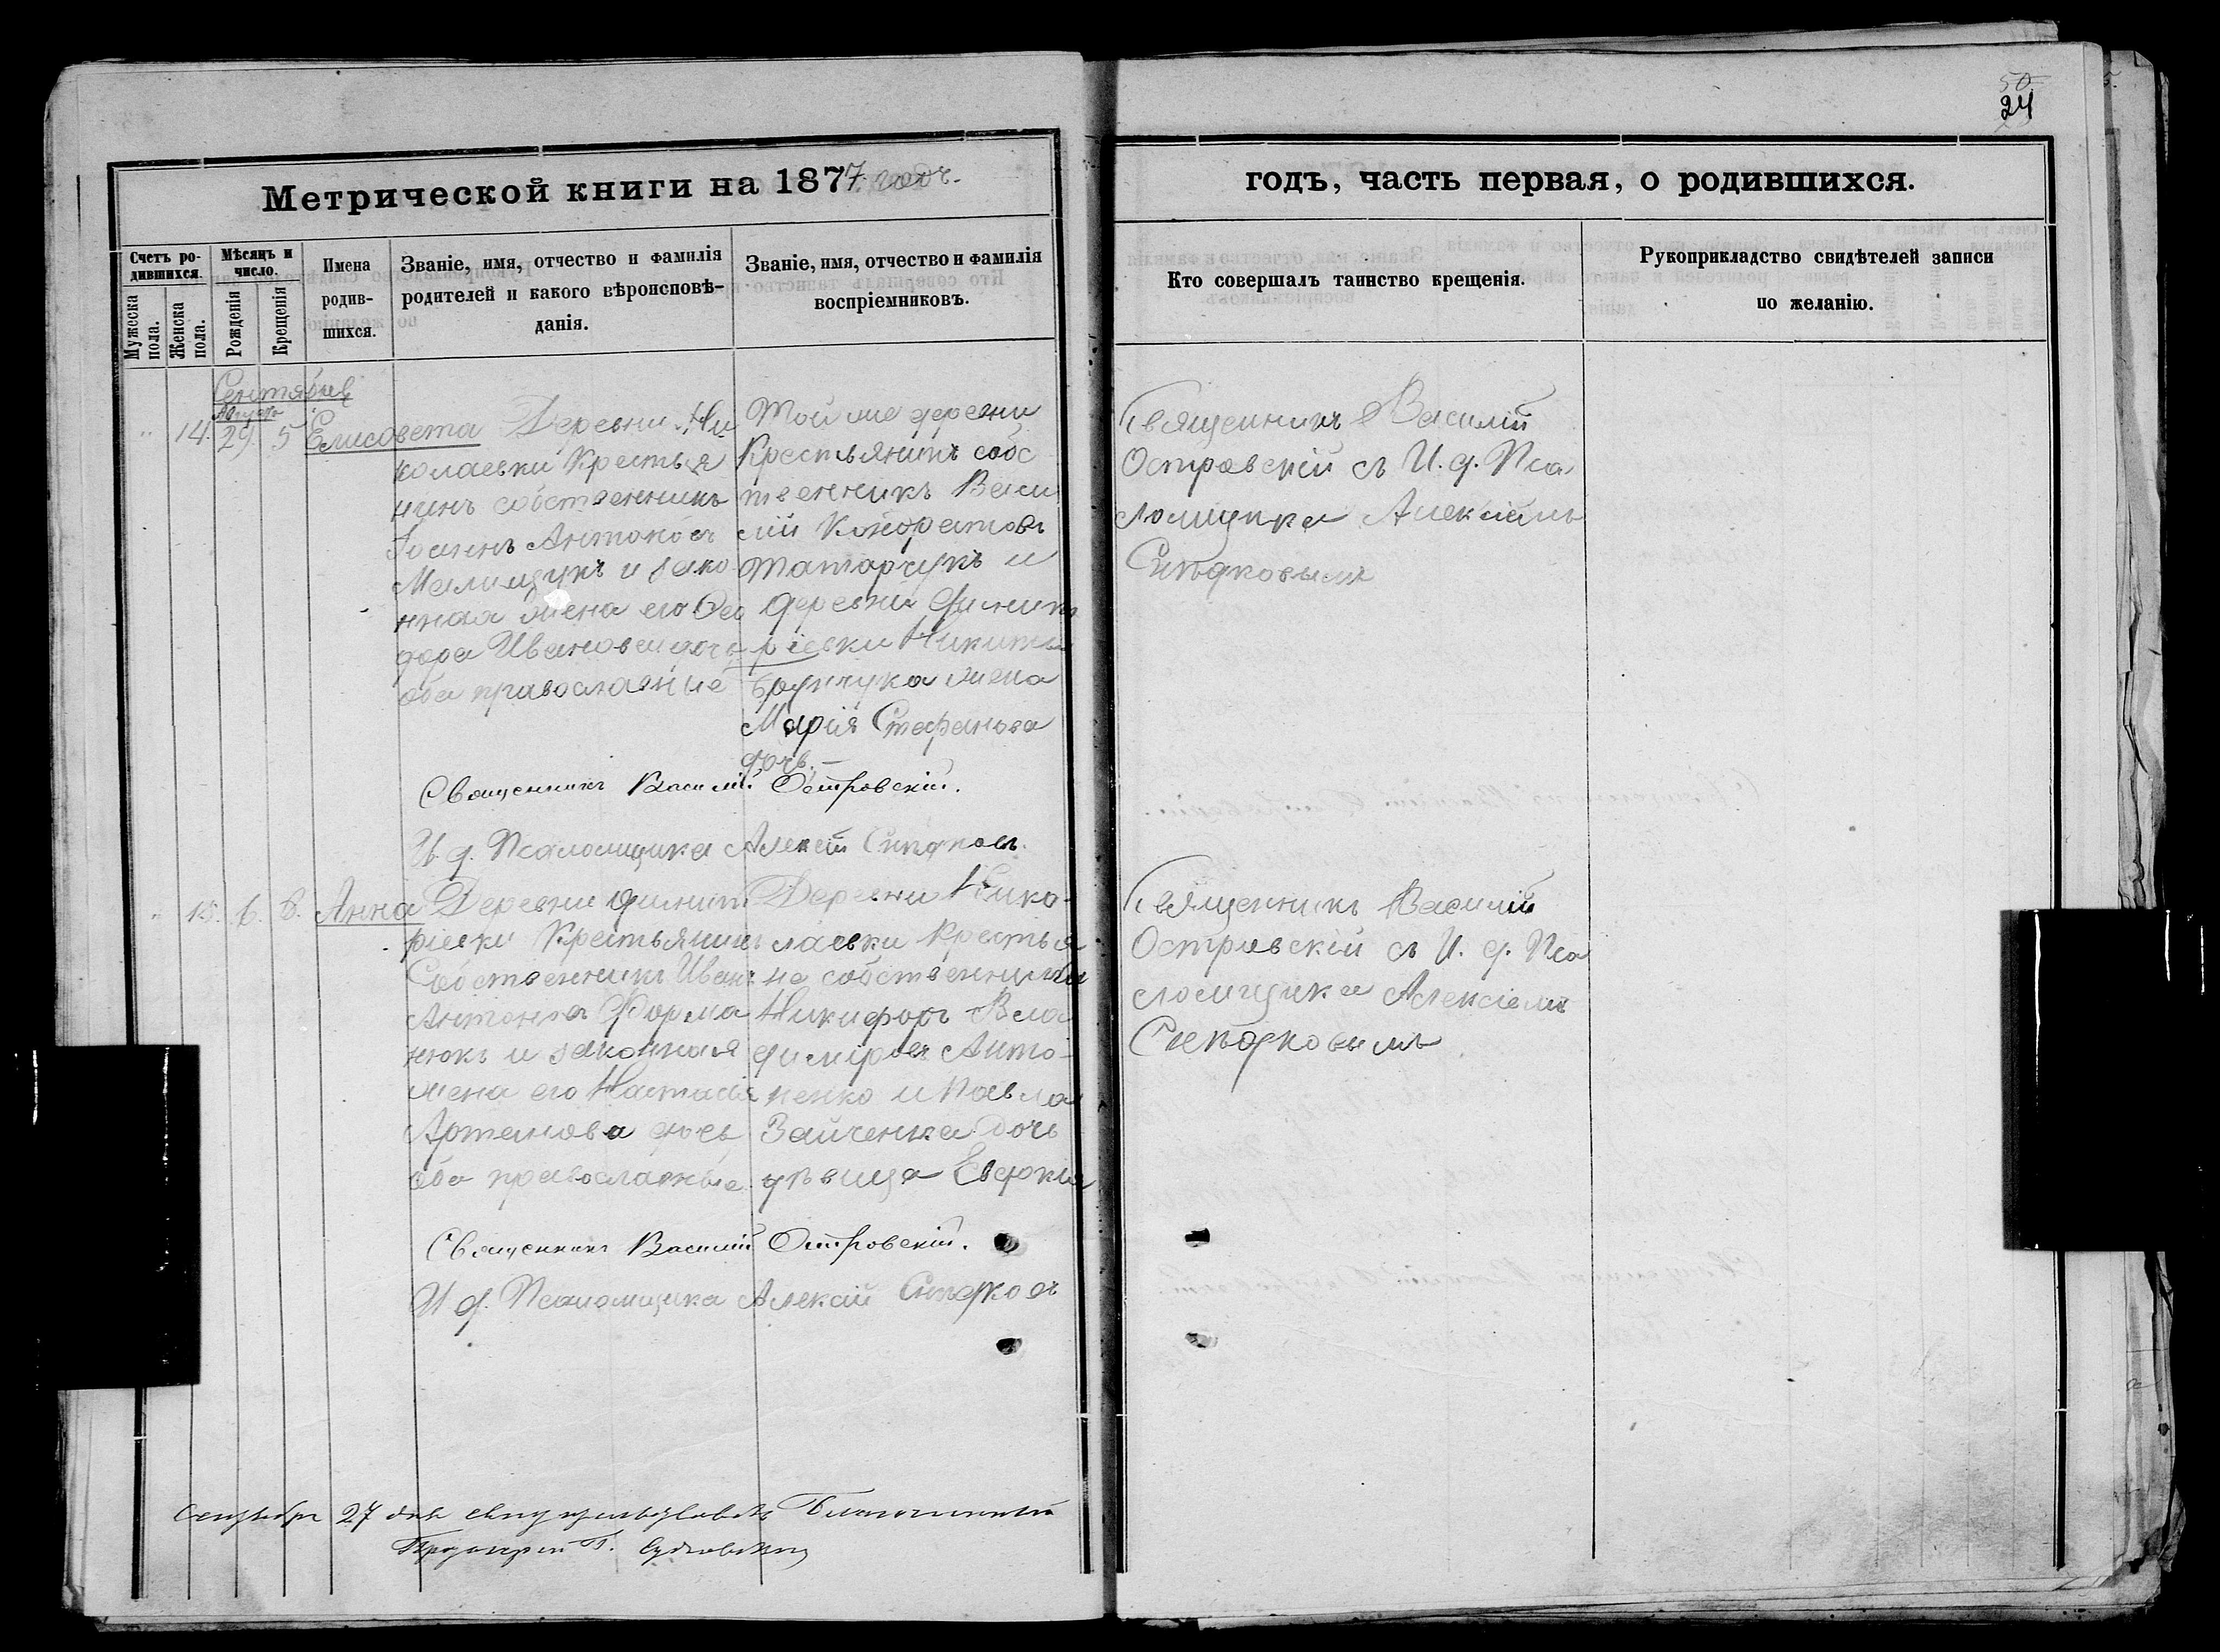 50
24
Метрической книги на 1877 годъ.
годъ, часть первая, о родившихся.
Счетъ ро-
дившихся.
Мужеска
пола.
Женска
пола.
Мѣсяцъ и
число.
Рожденія
Крещенія
Имена
родив-
шихся.
Званіе, имя, отчество и фамилія
родителей и какого вѣроисповѣ-
данія.
Званіе, имя, отчество и фамилія
воспріемниковъ.
Кто совершалъ таинство крещенія.
Рукоприкладство свидѣтелей записи
по желанію.
Сентябрь
Августа
14. 29. 5 Елисавета
Деревни Ни
колаевки Крестья
нинъ собственникъ
Іоаннъ Антоновъ
Мелищукъ и зако
нная жена его Ѳео
дора Иванова дочь
оба православные
Той же деревни
Крестьянинъ собс
твенникъ Васи
лій Кондратовъ
Татарчукъ и
деревни Димит
ріевки Никиты
жена
Марія Стефанова
дочь. —
Священникъ Василій
Островскій съ И. д. Пса
ломщика Алексіемъ
Священникъ Василій Островскій.
И. д. Псаломщика Алексій
15. 6. 8. Анна
Деревни Димит
ріевки Крестьянинъ
Собственникъ Иванъ
Антоновъ Форма
нюкъ и законная
жена его Настасія
Артемова дочь
оба православные
Деревни Нико-
лаевки Крестья
не собственники
Никифоръ Вла
диміровъ Анто-
ненко и Павла
Зайченка дочь
дѣвица Евдокія
Священникъ Василій
Островскій съ И. д. Пса
ломщика Алексіемъ
Священникъ Василій Островскій.
И д. Псаломщика Алексій
Сентября 27 дня свидѣтельствовалъ Благочинный
Протоіерей